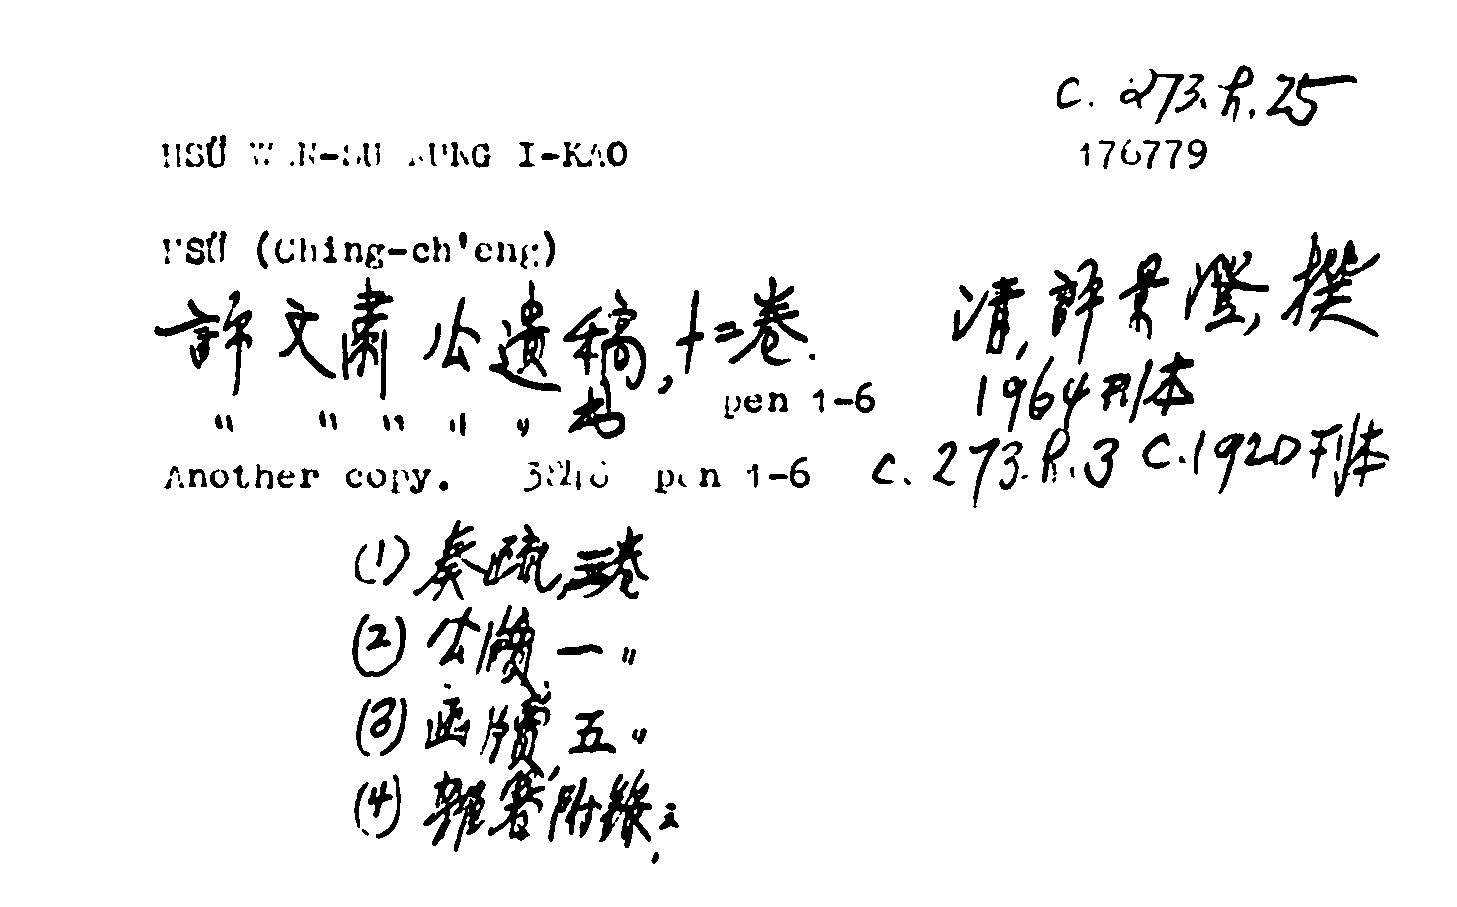 C. 273.h.25
HSÜ WEN-SU KUNG I-KAO 176779
HSÜ (Ching-ch'eng)
許文肅公遺稿, 十二卷. 清, 許景澄, 撰
pen 1-6 1964刊本
" " " " "
Another copy. pen 1-6 C. 273.h.3 C.1920刊本
(1) 奏疏, 三卷
(2) 公牘, 一 "
(3) 函牘, 五 "
(4) 雜著附錄,